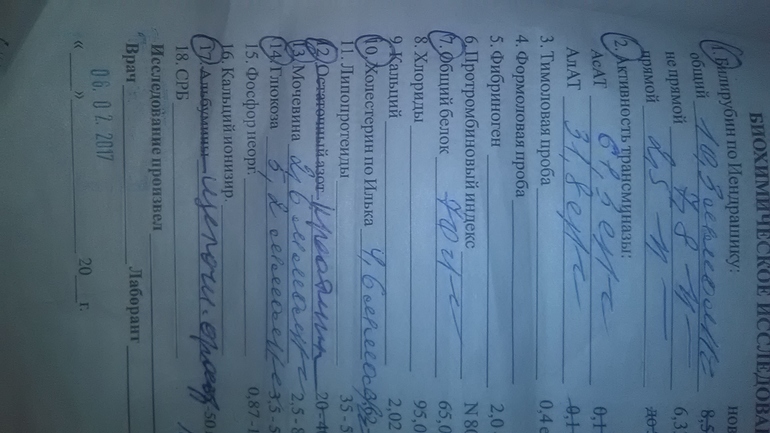 БИОХИМИЧЕСКОЕ ИССЛЕДОВА
1. Билирубин по Иендрашику:
общий 10,3
не прямой 7,8
прямой 2,5
2. Активность трансминазы:
АсАТ 61,3 0,1
АлАТ 31,8 0,1
3. Тимоловая проба 0,4 е
4. Формоловая проба
5. Фибриноген 2,0
6. Протромбиновый индекс N 80
7. Общий белок 70 г/л 65,0
8. Хлориды 95,0
9. Кальций 2,02
10. Холестерин по Илька 4,6
11. Липопротеиды 35 - 5
12. Остаточный азот
13. Мочевина 2,6 2,5 - 8
14. Глюкоза 5,2
15. Фосфор неорг. 0,87-1
16. Кальций ионизир.
17. Альбумины щелочн. фосф
18. СРБ
Исследование произвел
Врач Лаборант
06. 02. 2017
« » 20 г.